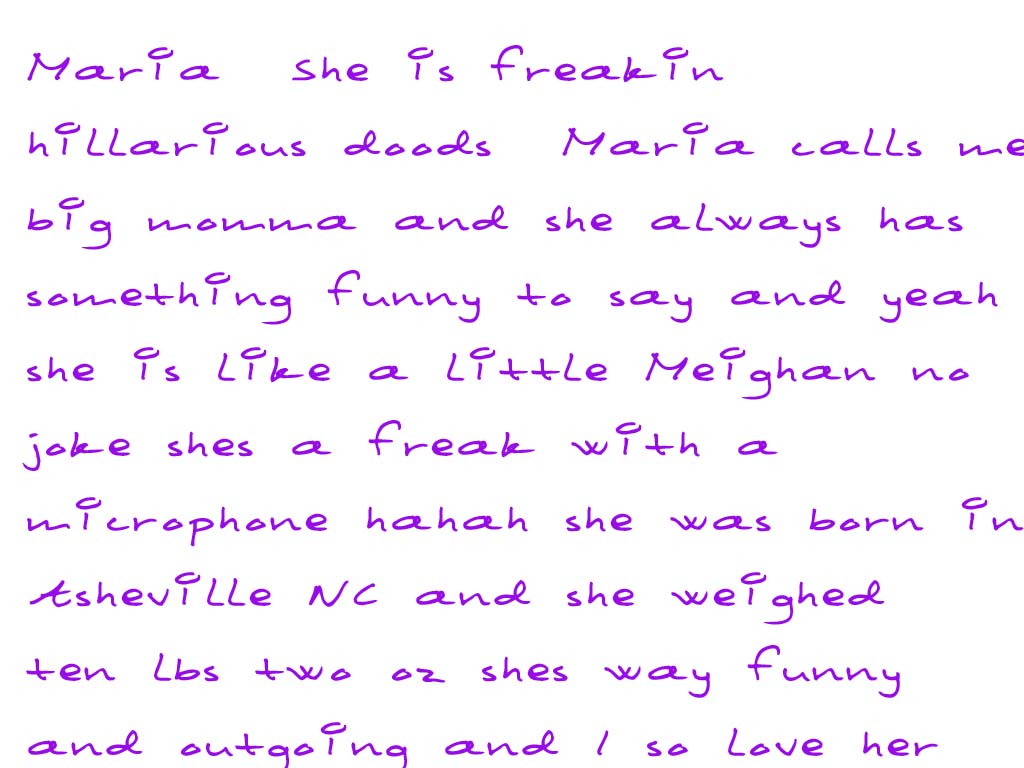 Maria she is freakin
hillarious doods Maria calls me
big momma and she always has
something funny to say and yeah
she is like a little Meighan no
joke shes a freak with a
microphone hahah she was born in
Asheville NC and she weighed
ten lbs two oz shes way funny
and outgoing and I so love her